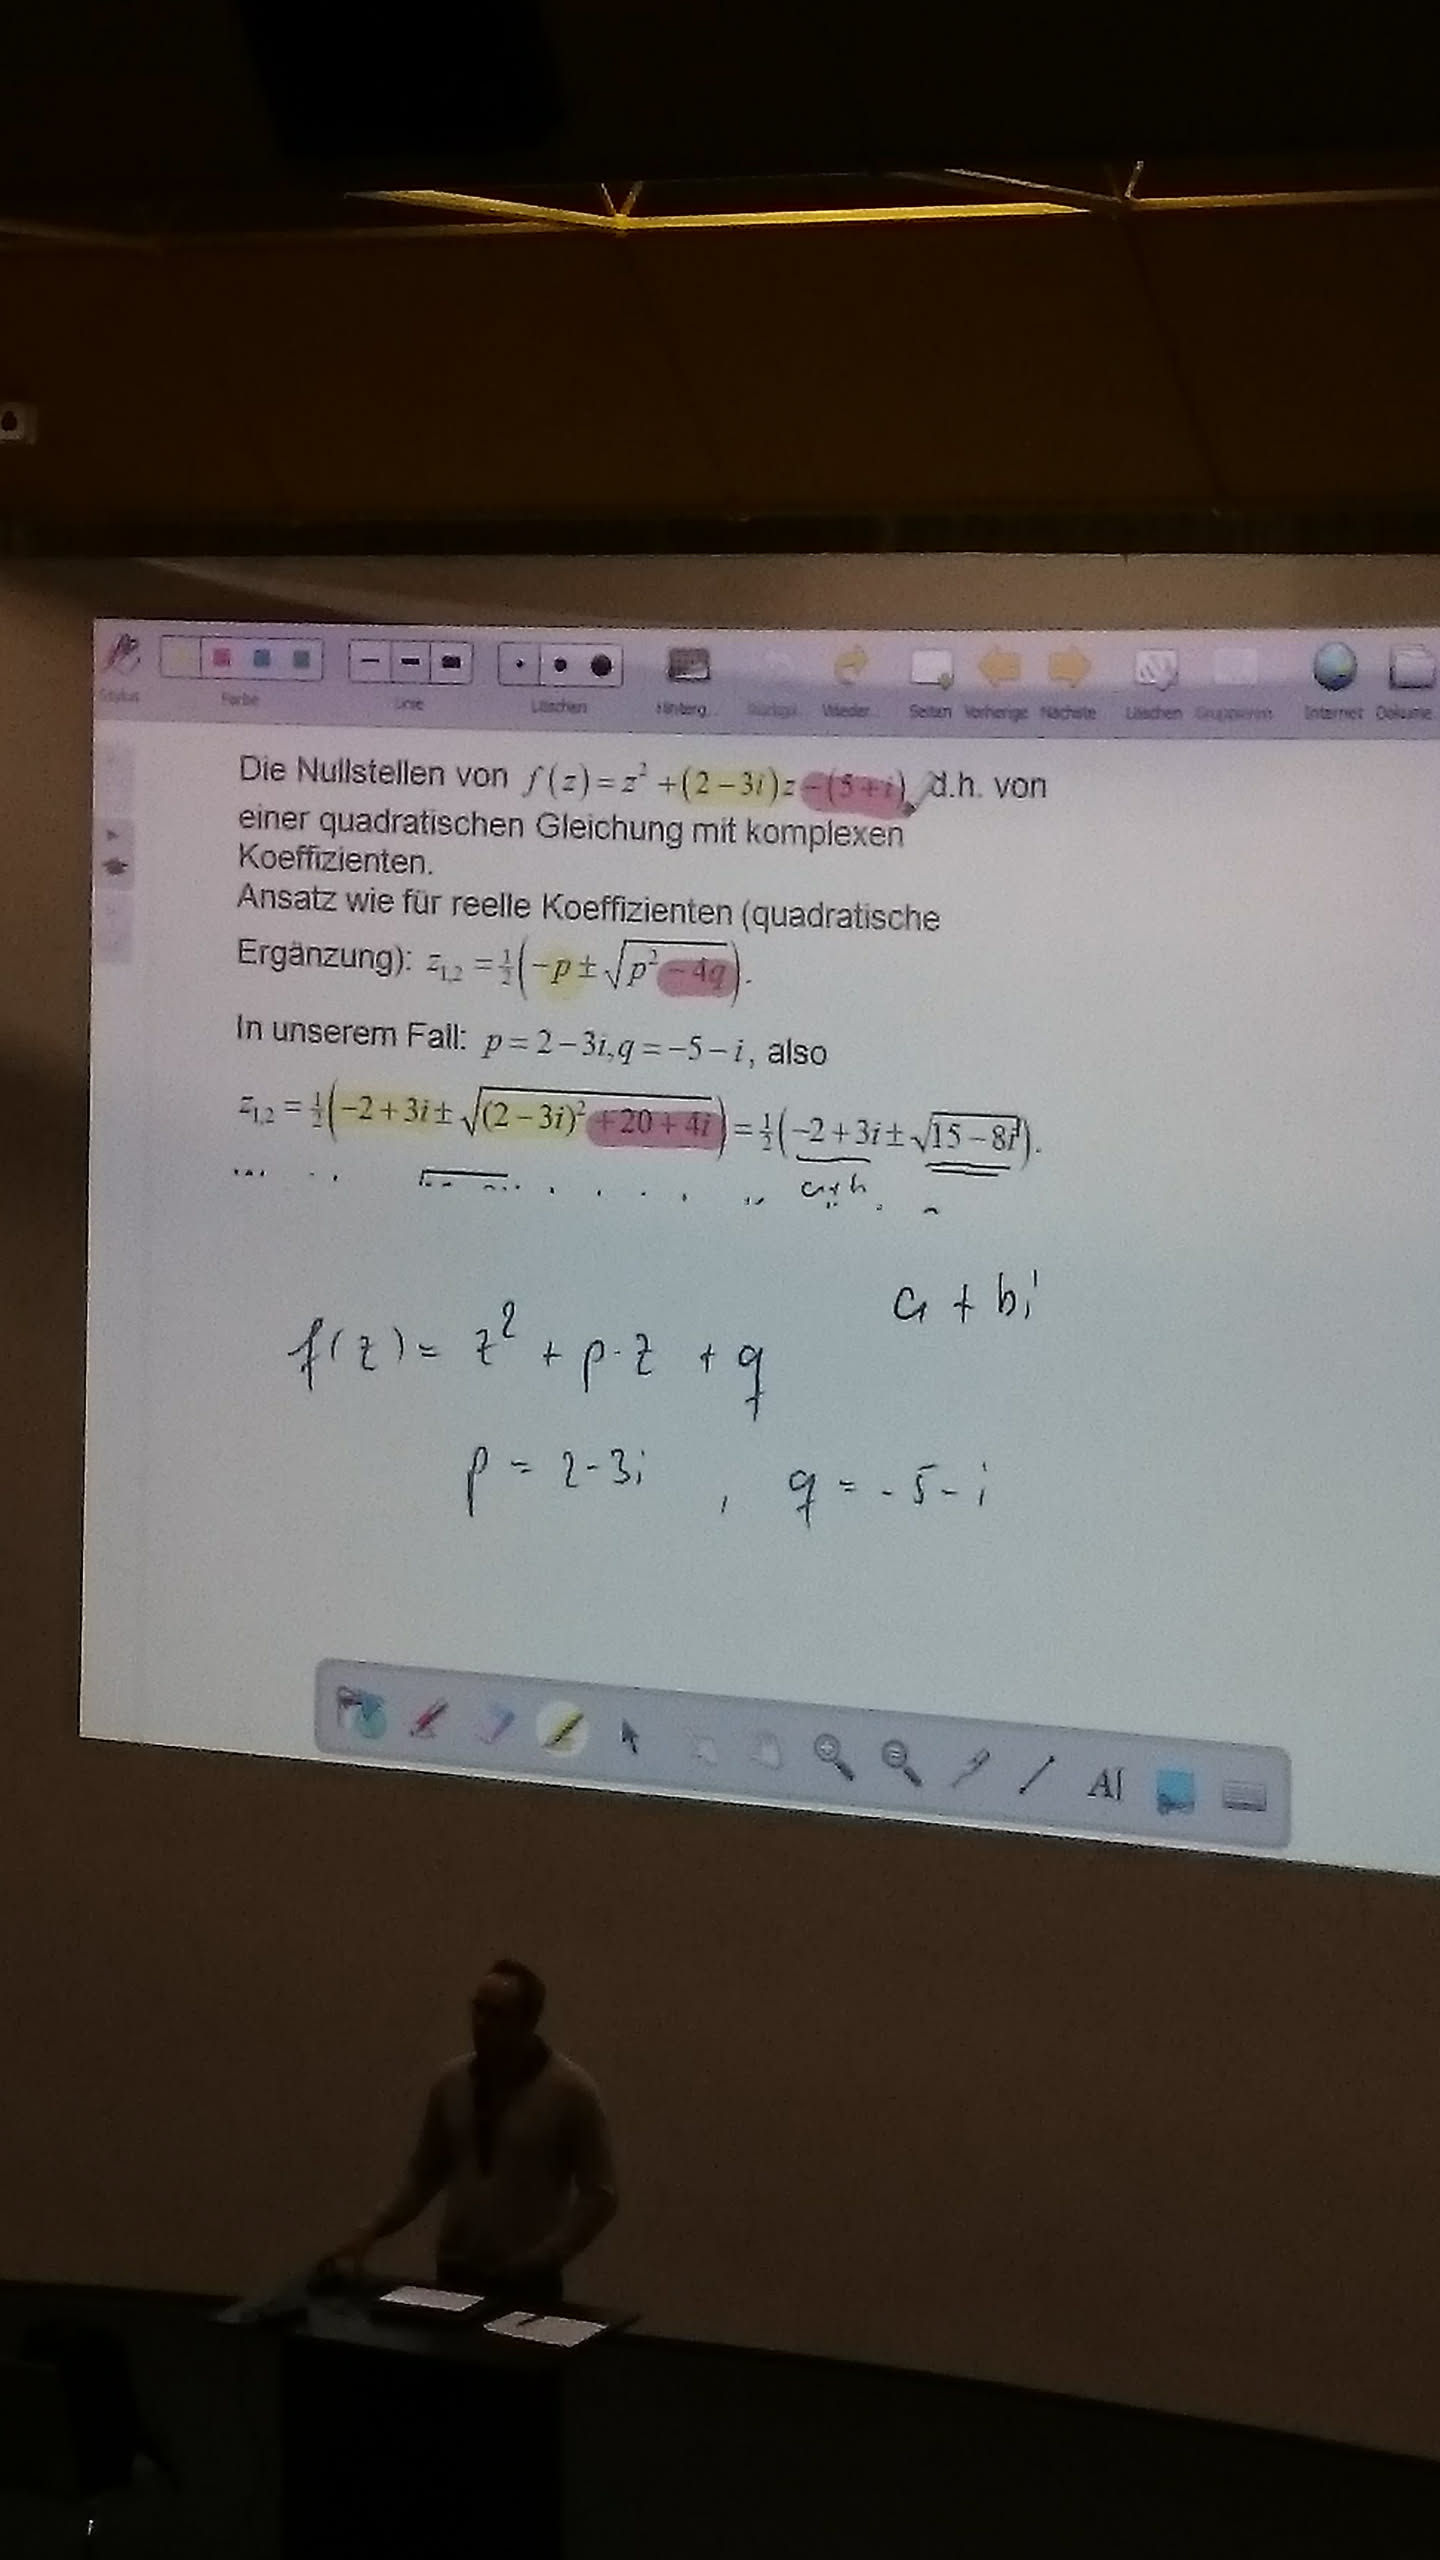 Stylus Farbe Linie Löschen Hinterg... Wieder... Seiten Vorherige Nächste Löschen Gruppieren Internet Dokume...
Die Nullstellen von f(z) = z² + (2 − 3i)z − (5 + i), d.h. von
einer quadratischen Gleichung mit komplexen
Koeffizienten.
Ansatz wie für reelle Koeffizienten (quadratische
Ergänzung): z₁,₂ = ½(−p ± √(p² − 4q)).
In unserem Fall: p = 2 − 3i, q = −5 − i, also
z₁,₂ = ½(−2 + 3i ± √((2 − 3i)² + 20 + 4i)) = ½(−2 + 3i ± √(15 − 8i)).
a + bi
f(z) = z² + p · z + q
p = 2 - 3i , q = - 5 - i
A